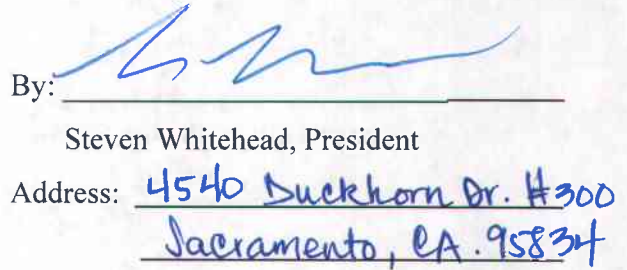 By:
Steven Whitehead, President
Address: 4540 Duckhorn Dr. #300
Sacramento, CA. 95834